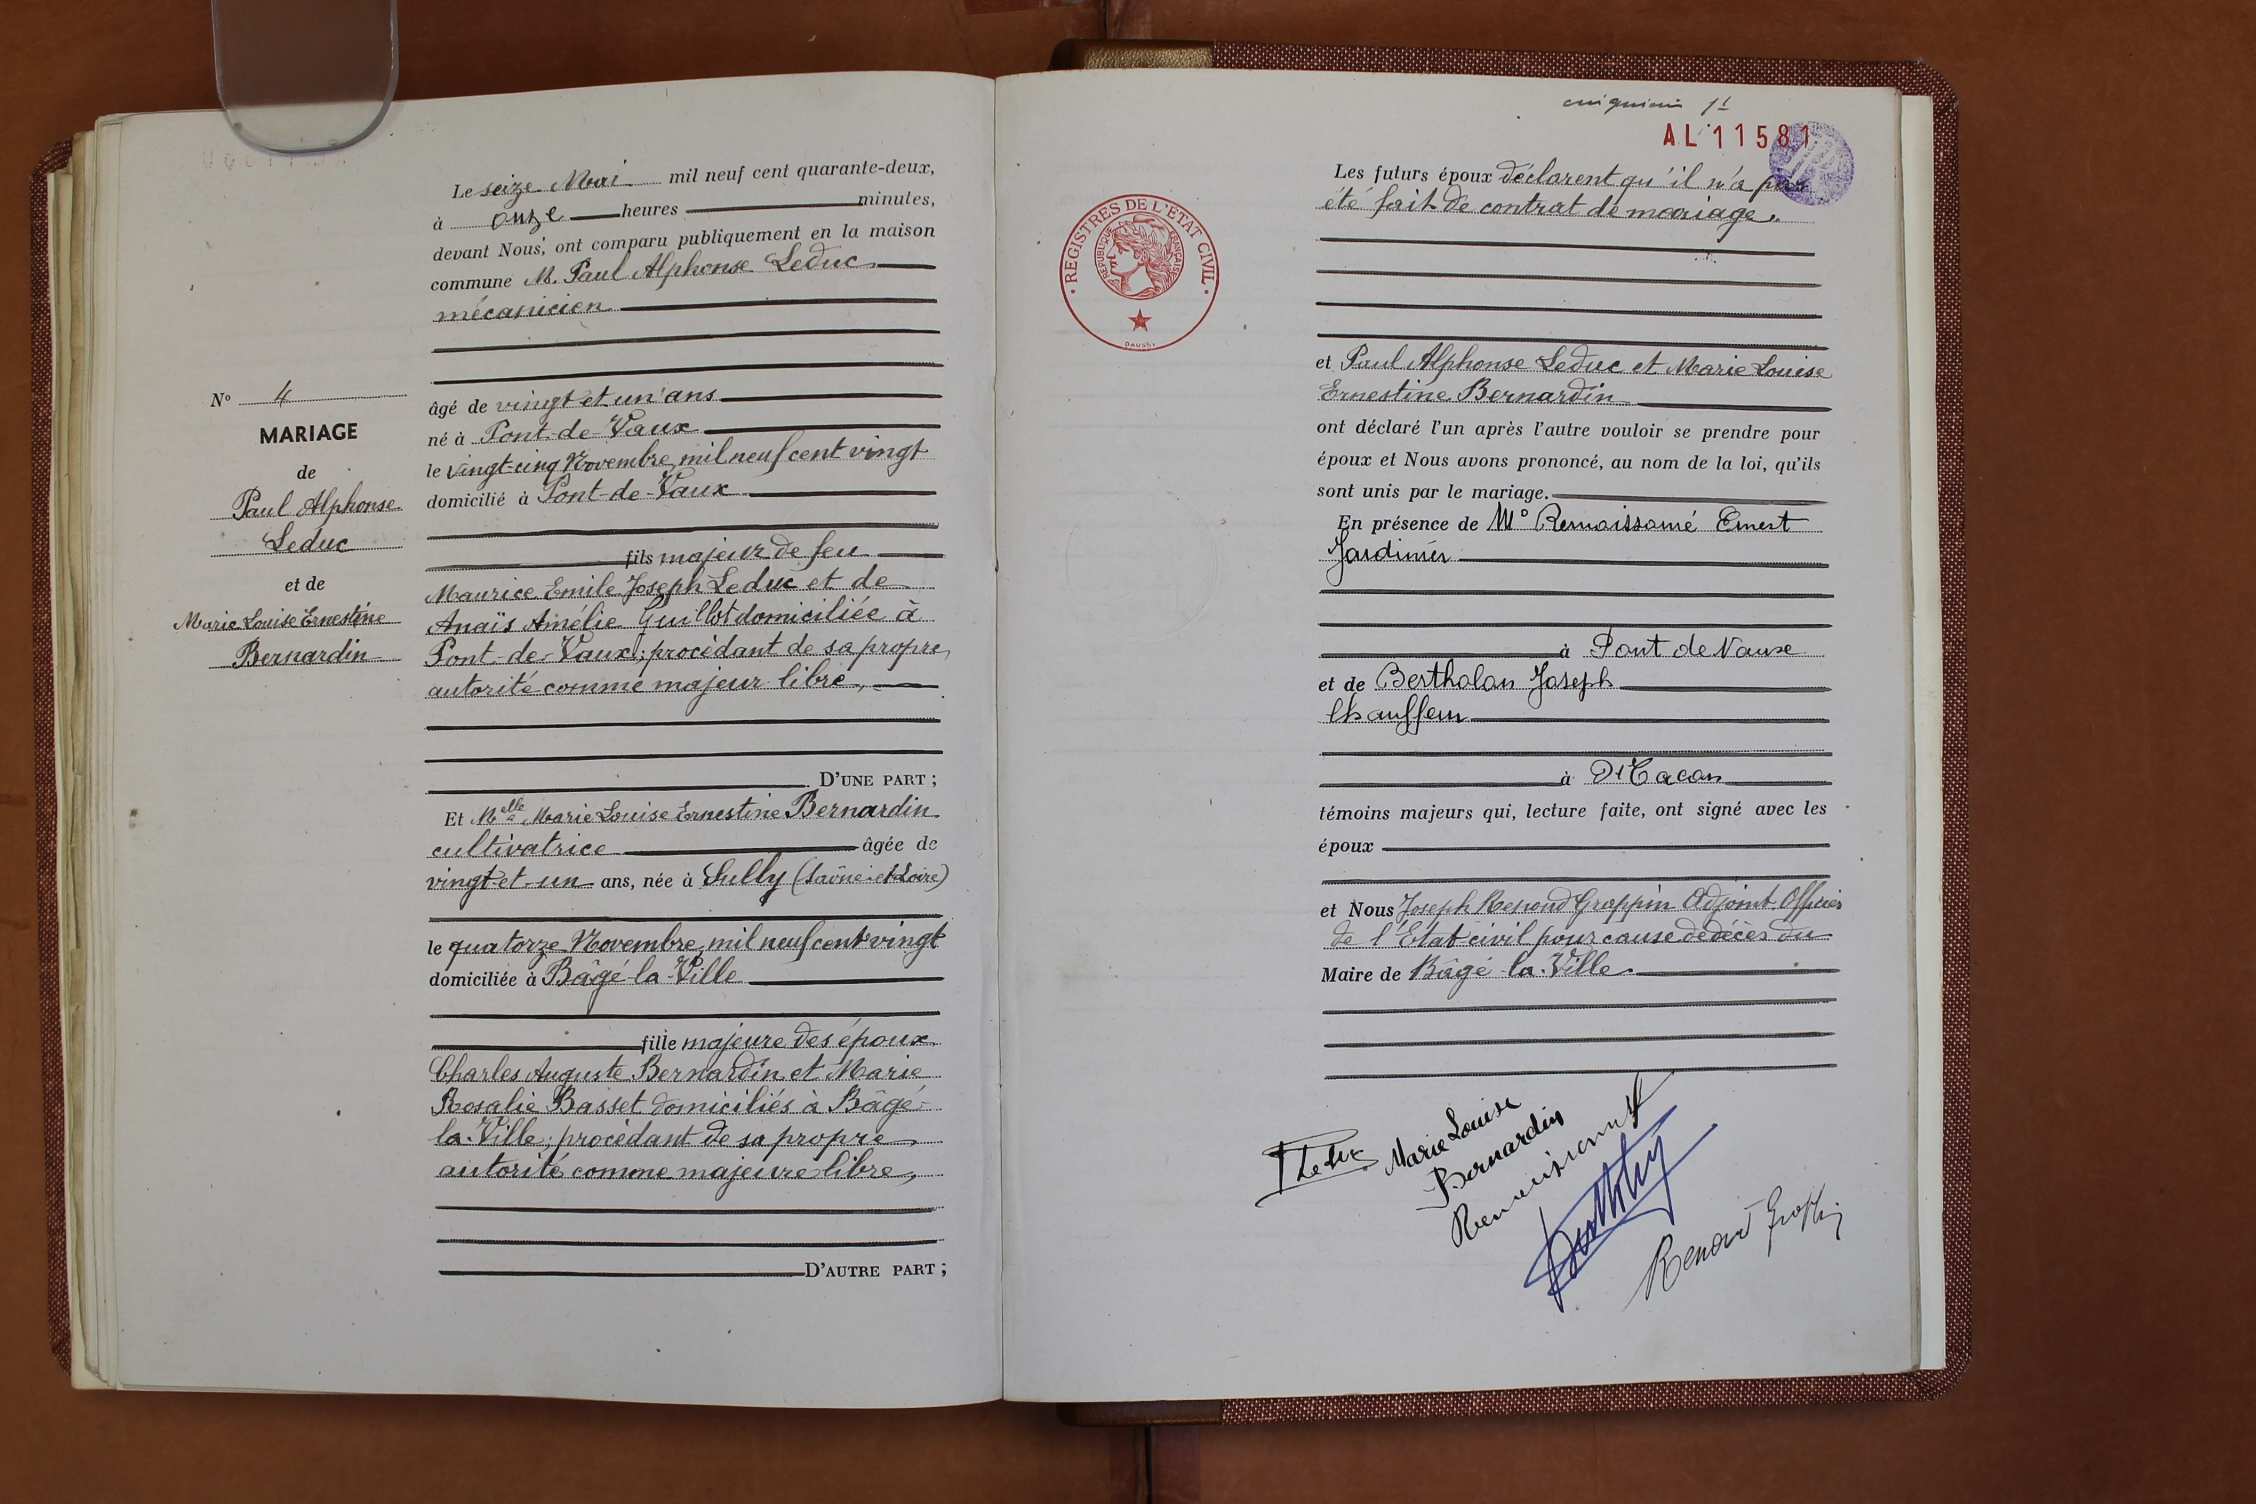 Le seize Mai mil neuf cent quarante-deux,
à onze heures minutes,
devant Nous, ont comparu publiquement en la maison
commune M. Paul Alphonse Leduc
mécanicien
âgé de vingt et un ans
né à Pont-de-Vaux
le vingt-cinq Novembre mil neuf cent vingt
domicilié à Pont-de-Vaux
fils majeur de feu
Maurice Emile Joseph Leduc et de
Anaïs Amélie Guillot domiciliée à
Pont-de-Vaux; procédant de sa propre
autorité comme majeur libre,
D'UNE PART ;
Et Melle Marie Louise Ernestine Bernardin
cultivatrice âgée de
vingt-et-un ans, née à Sully (Saône-et-Loire)
le quatorze Novembre mil neuf cent vingt
domiciliée à Bâgé-la-Ville
fille majeure des époux
Charles Auguste Bernardin et Marie
Rosalie Basset domiciliés à Bâgé-
la-Ville; procédant de sa propre
autorité comme majeure libre,
D'AUTRE PART ;
No 4
MARIAGE
de
Paul Alphonse
Leduc
et de
Marie Louise Ernestine
Bernardin
AL 11581
REGISTRES DE L'ETAT CIVIL
REPUBLIQUE FRANÇAISE
DAUSSY
Les futurs époux déclarent qu'il n'a pas
été fait de contrat de mariage.
et Paul Alphonse Leduc et Marie Louise
Ernestine Bernardin
ont déclaré l'un après l'autre vouloir se prendre pour
époux et Nous avons prononcé, au nom de la loi, qu'ils
sont unis par le mariage.
En présence de Ernest
Jardinier
à Pont de Vaux
et de Joseph
Chauffeur
à
témoins majeurs qui, lecture faite, ont signé avec les
époux
et Nous Joseph Renoud Grappin Adjoint Officier
de l'Etat-civil pour cause de décès du
Maire de Bâgé-la-Ville.
Leduc
Marie Louise
Bernardin